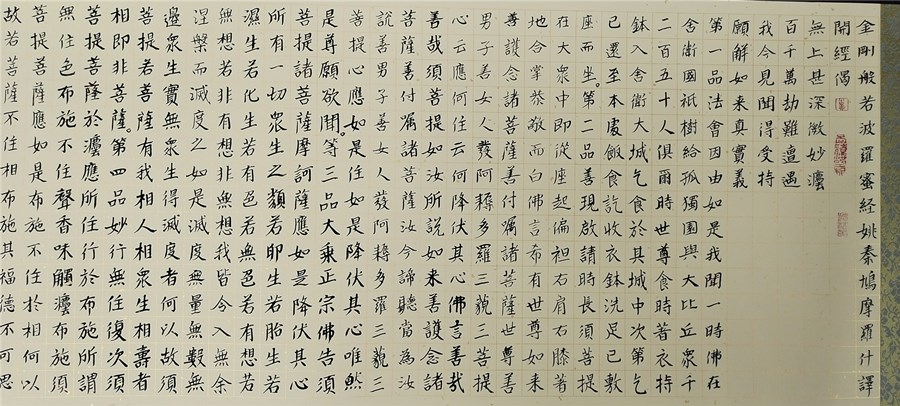 金剛般若波羅蜜経姚秦鳩摩羅什譯
開經偈
無上甚深微妙灋
百千萬劫難遭遇
我今見聞得受持
願解如来真實義
第一品法會因由如是我聞一時佛在
舍衛國祇樹給孤獨園與大比丘衆千
二百五十人俱爾時世尊食時著衣持
鉢入舍衛大城乞食於其城中次第乞
已還至本處飯食訖收衣鉢洗足已敷
座而坐。第二品善現啟請時長須菩提
在大衆中即從座起偏袒右肩右膝著
地合掌恭敬而白佛言希有世尊如来
善護念諸菩薩善付嘱諸菩薩世尊善
男子善女人發阿耨多羅三藐三菩提
心云應何住云何降伏其心佛言善哉
善哉須菩提如汝所說如来善護念諸
菩薩善付嘱諸菩薩汝今諦聽當為汝
說善男子善女人發阿耨多羅三藐三
菩提心應如是住如是降伏其心唯然
是尊願欲聞。等三品大乘正宗佛告須
菩提諸菩薩摩訶薩應如是降伏其心
所有一切衆生之類若卵生若胎生若
濕生若化生若有色若無色若有想若
無想若非有想非無想我皆令入無余
涅槃而滅度之如是滅度無量無數無
邊衆生實無衆生得滅度者何以故須
菩提若菩薩有我相人相衆生相壽者
相即非菩薩。第四品妙行無住復次須
菩提菩薩於灋應所住行於布施所謂
無住色布施不住聲香味觸灋布施須
菩提菩薩應如是布施不住於相何以
故若菩薩不住相布施其福德不可思